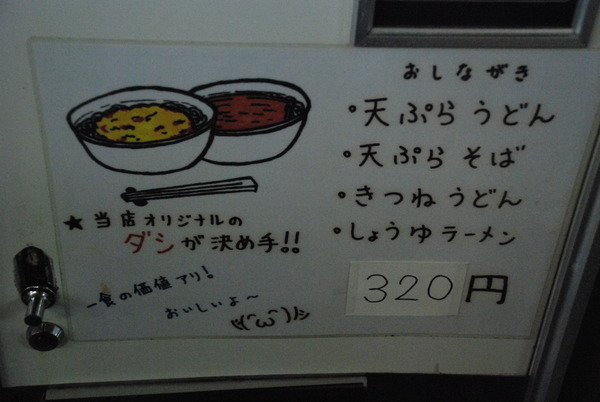 おしながき
・天ぷらうどん
・天ぷらそば
・きつねうどん
・しょうゆラーメン
320円
★当店オリジナルの
ダシが決め手!!
一食の価値アリ!
おいしいよ〜
ヾ(^ω^)ﾉｼ